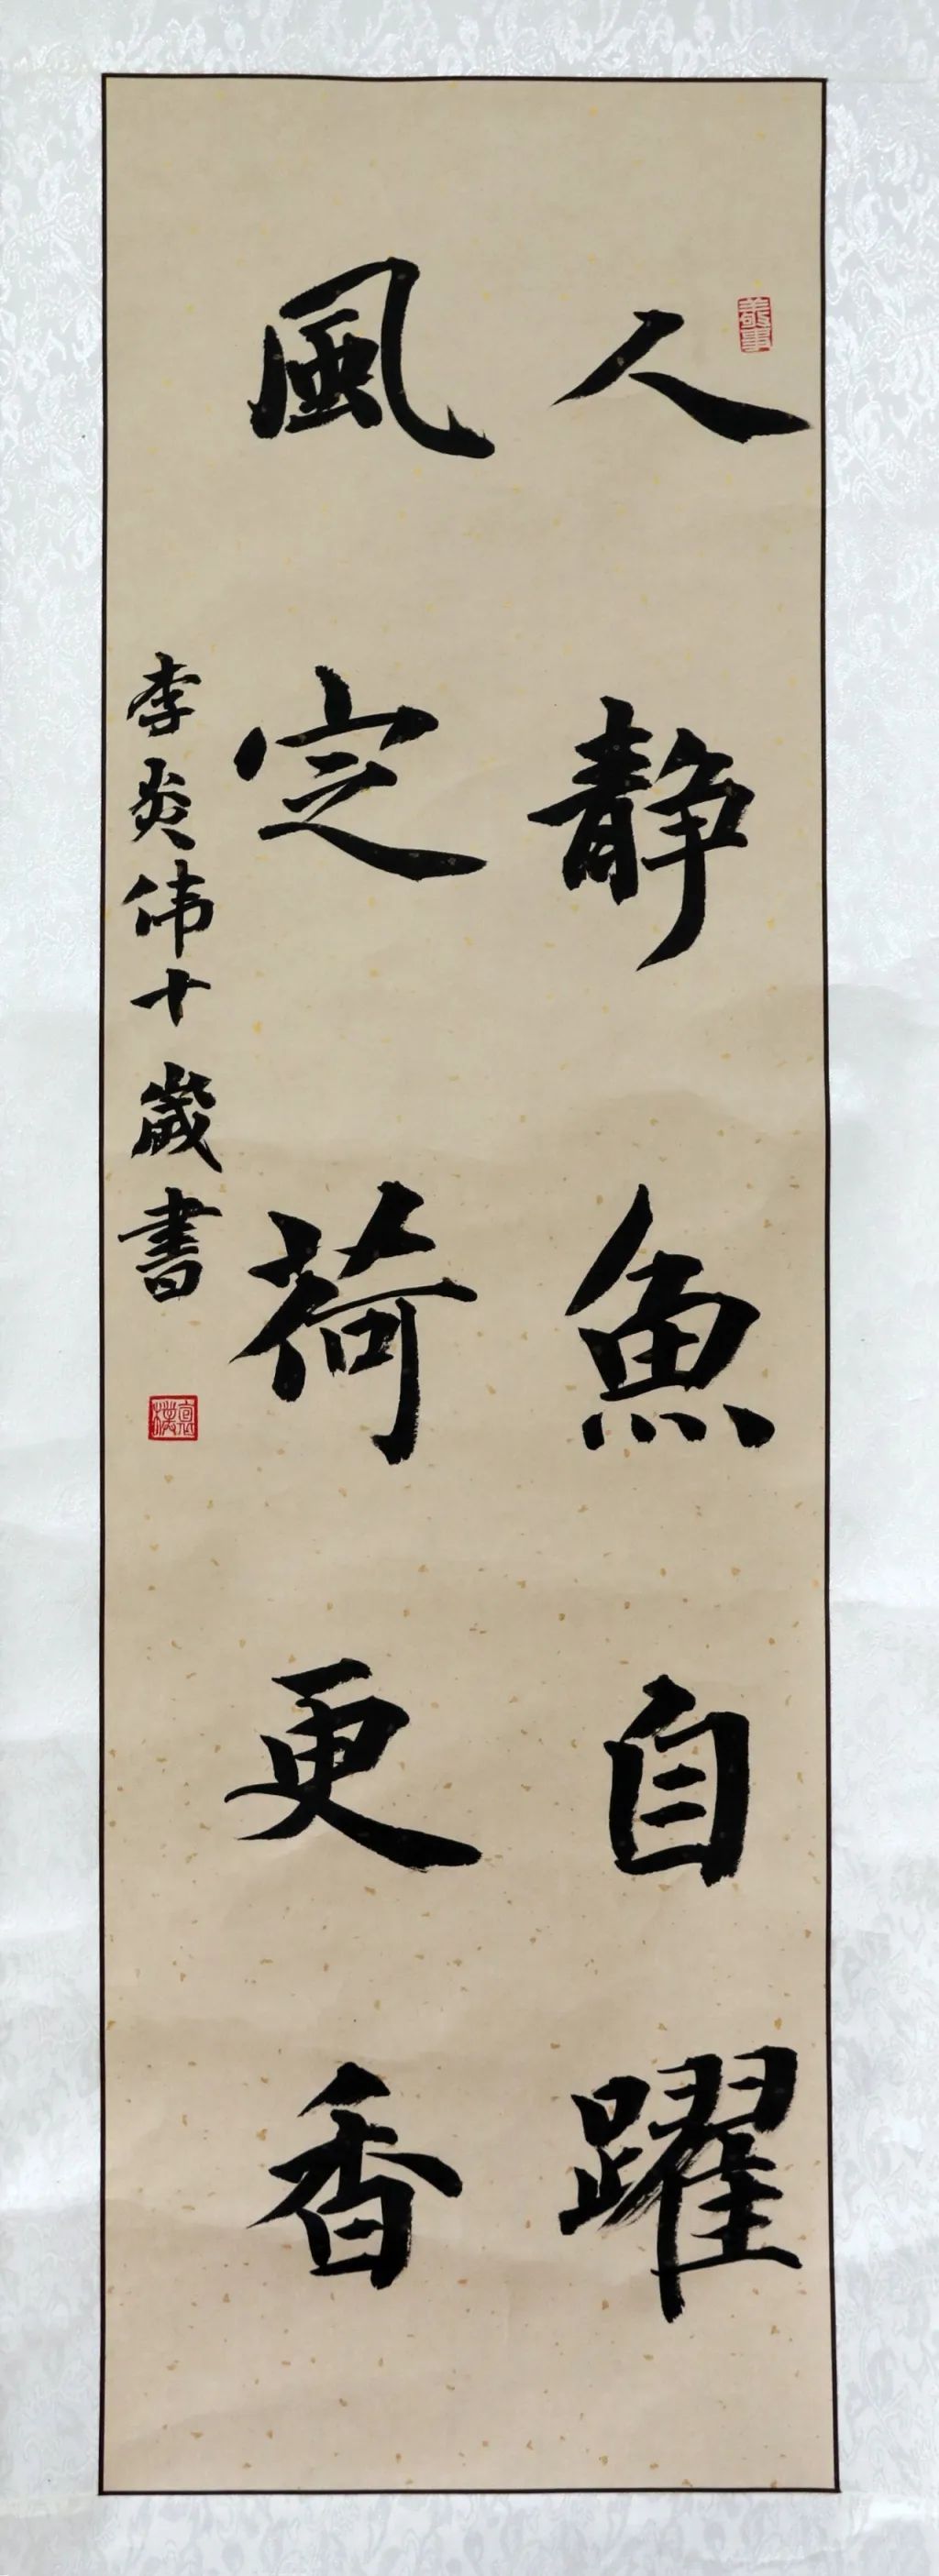 人静魚自躍
風定荷更香
李炎伟十歲書